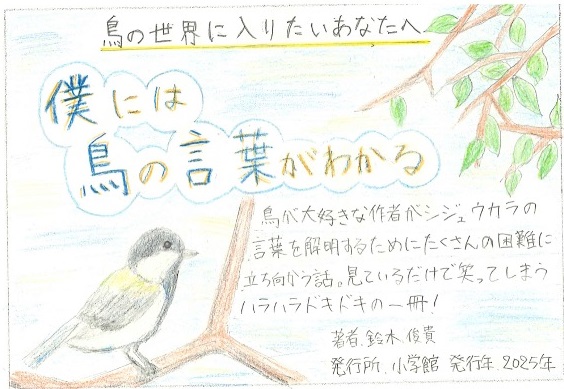 鳥の世界に入りたいあなたへ
僕には
鳥の言葉がわかる
鳥が大好きな作者がシジュウカラの
言葉を解明するためにたくさんの困難に
立ち向かう話。見ているだけで笑ってしまう
ハラハラドキドキの一冊!
著者.鈴木俊貴
発行所.小学館 発行年.2025年